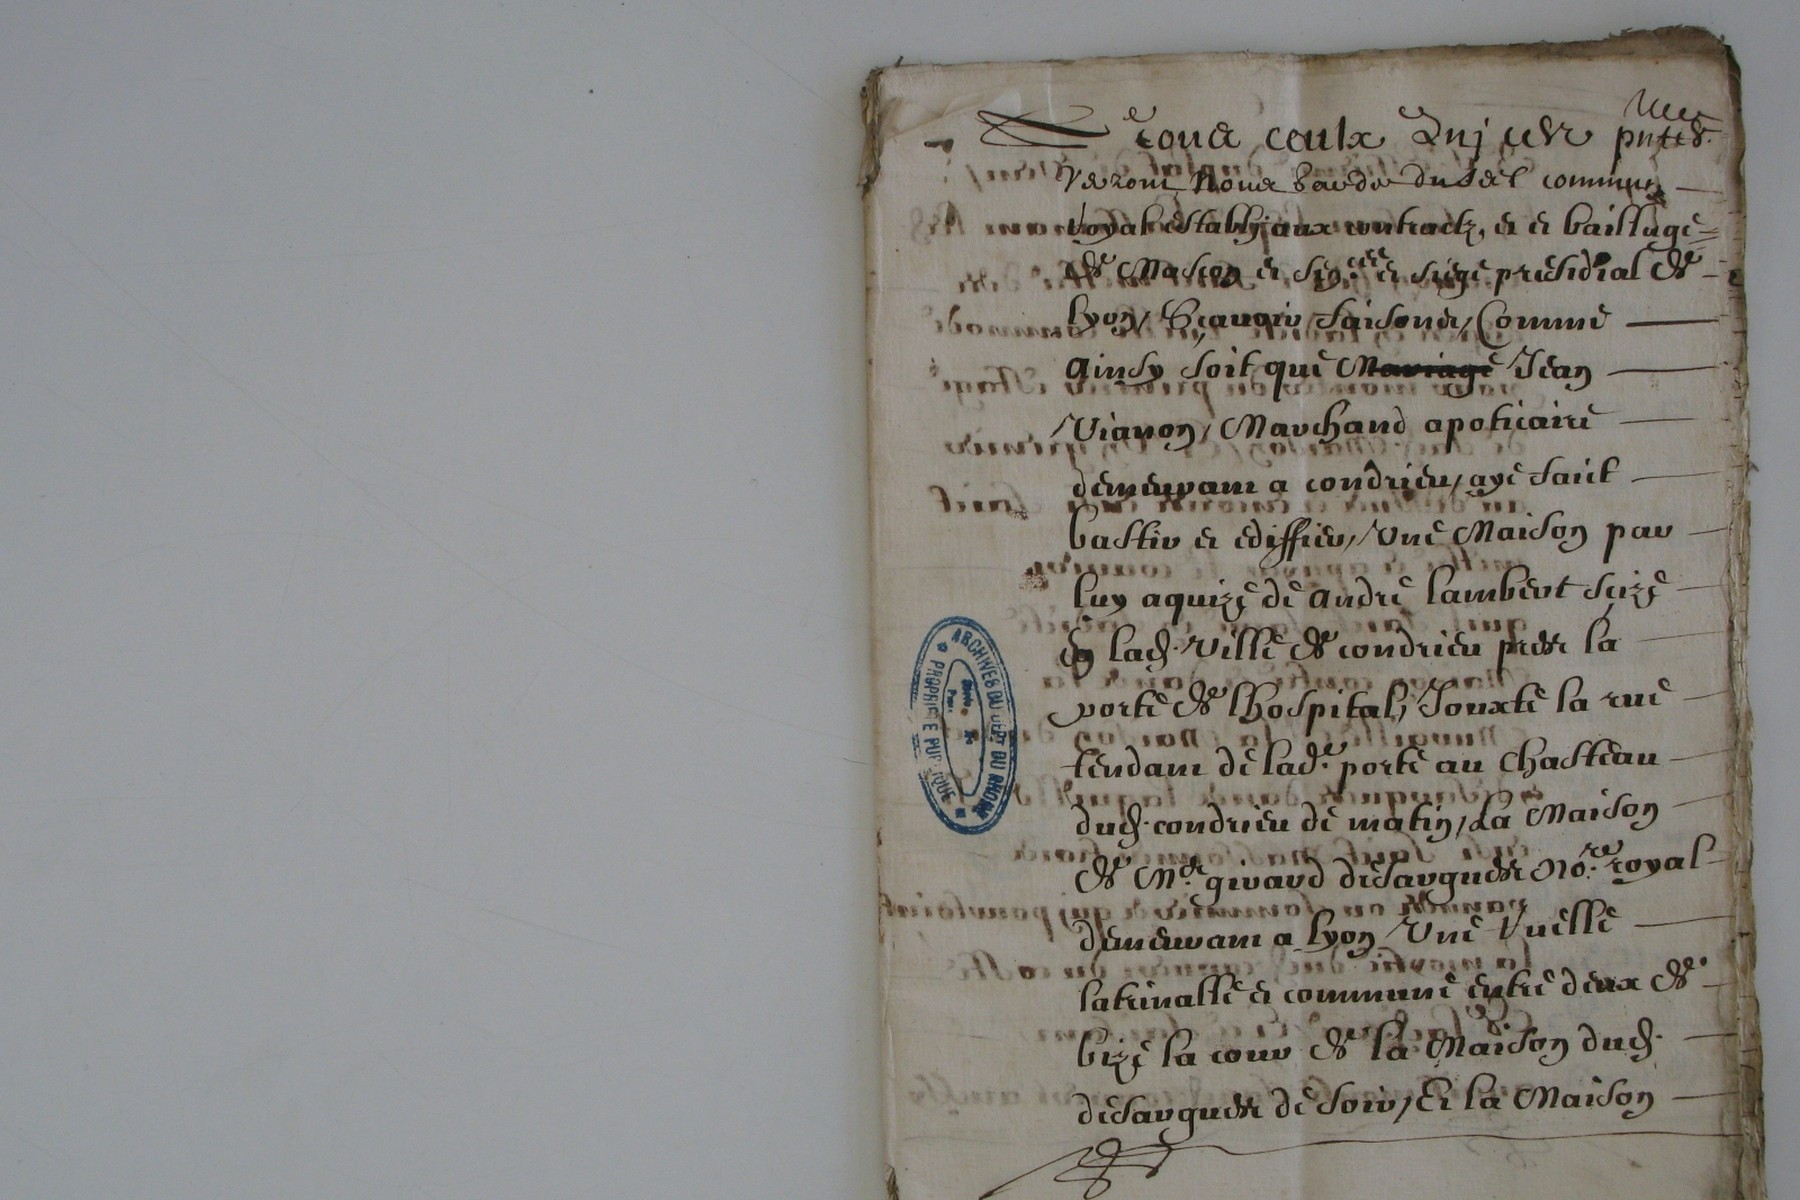 A tous ceulx Quj ces pntes
verront Nous garde du seel commun
royal estably aux contractz, et es bailliage
de Mascon et Sen.cee et siege presidial de
Lyon, Scavoir faisons, Comme
ainsy soit que Mariage Jean
Vianon, Marchand apoticaire
demeurant a condrieu, aye faict
bastir et ediffier, Une Maison par
luy aquize de andre lambert size
en lad. ville de condrieu pres la
porte de lhospital, Jouxte la rue
tendant de lad.e porte au chasteau
dud. condrieu de matin, La Maison
de M.e girard desargues No.re royal
demeurant a Lyon Une ruelle
latrinalle et commune entre deux de
bize la cour de la Maison dud.
desargues de soir, Et la Maison
ARCHIVES DU DEPT DU RHONE
PROPRIETE PUBLIQUE